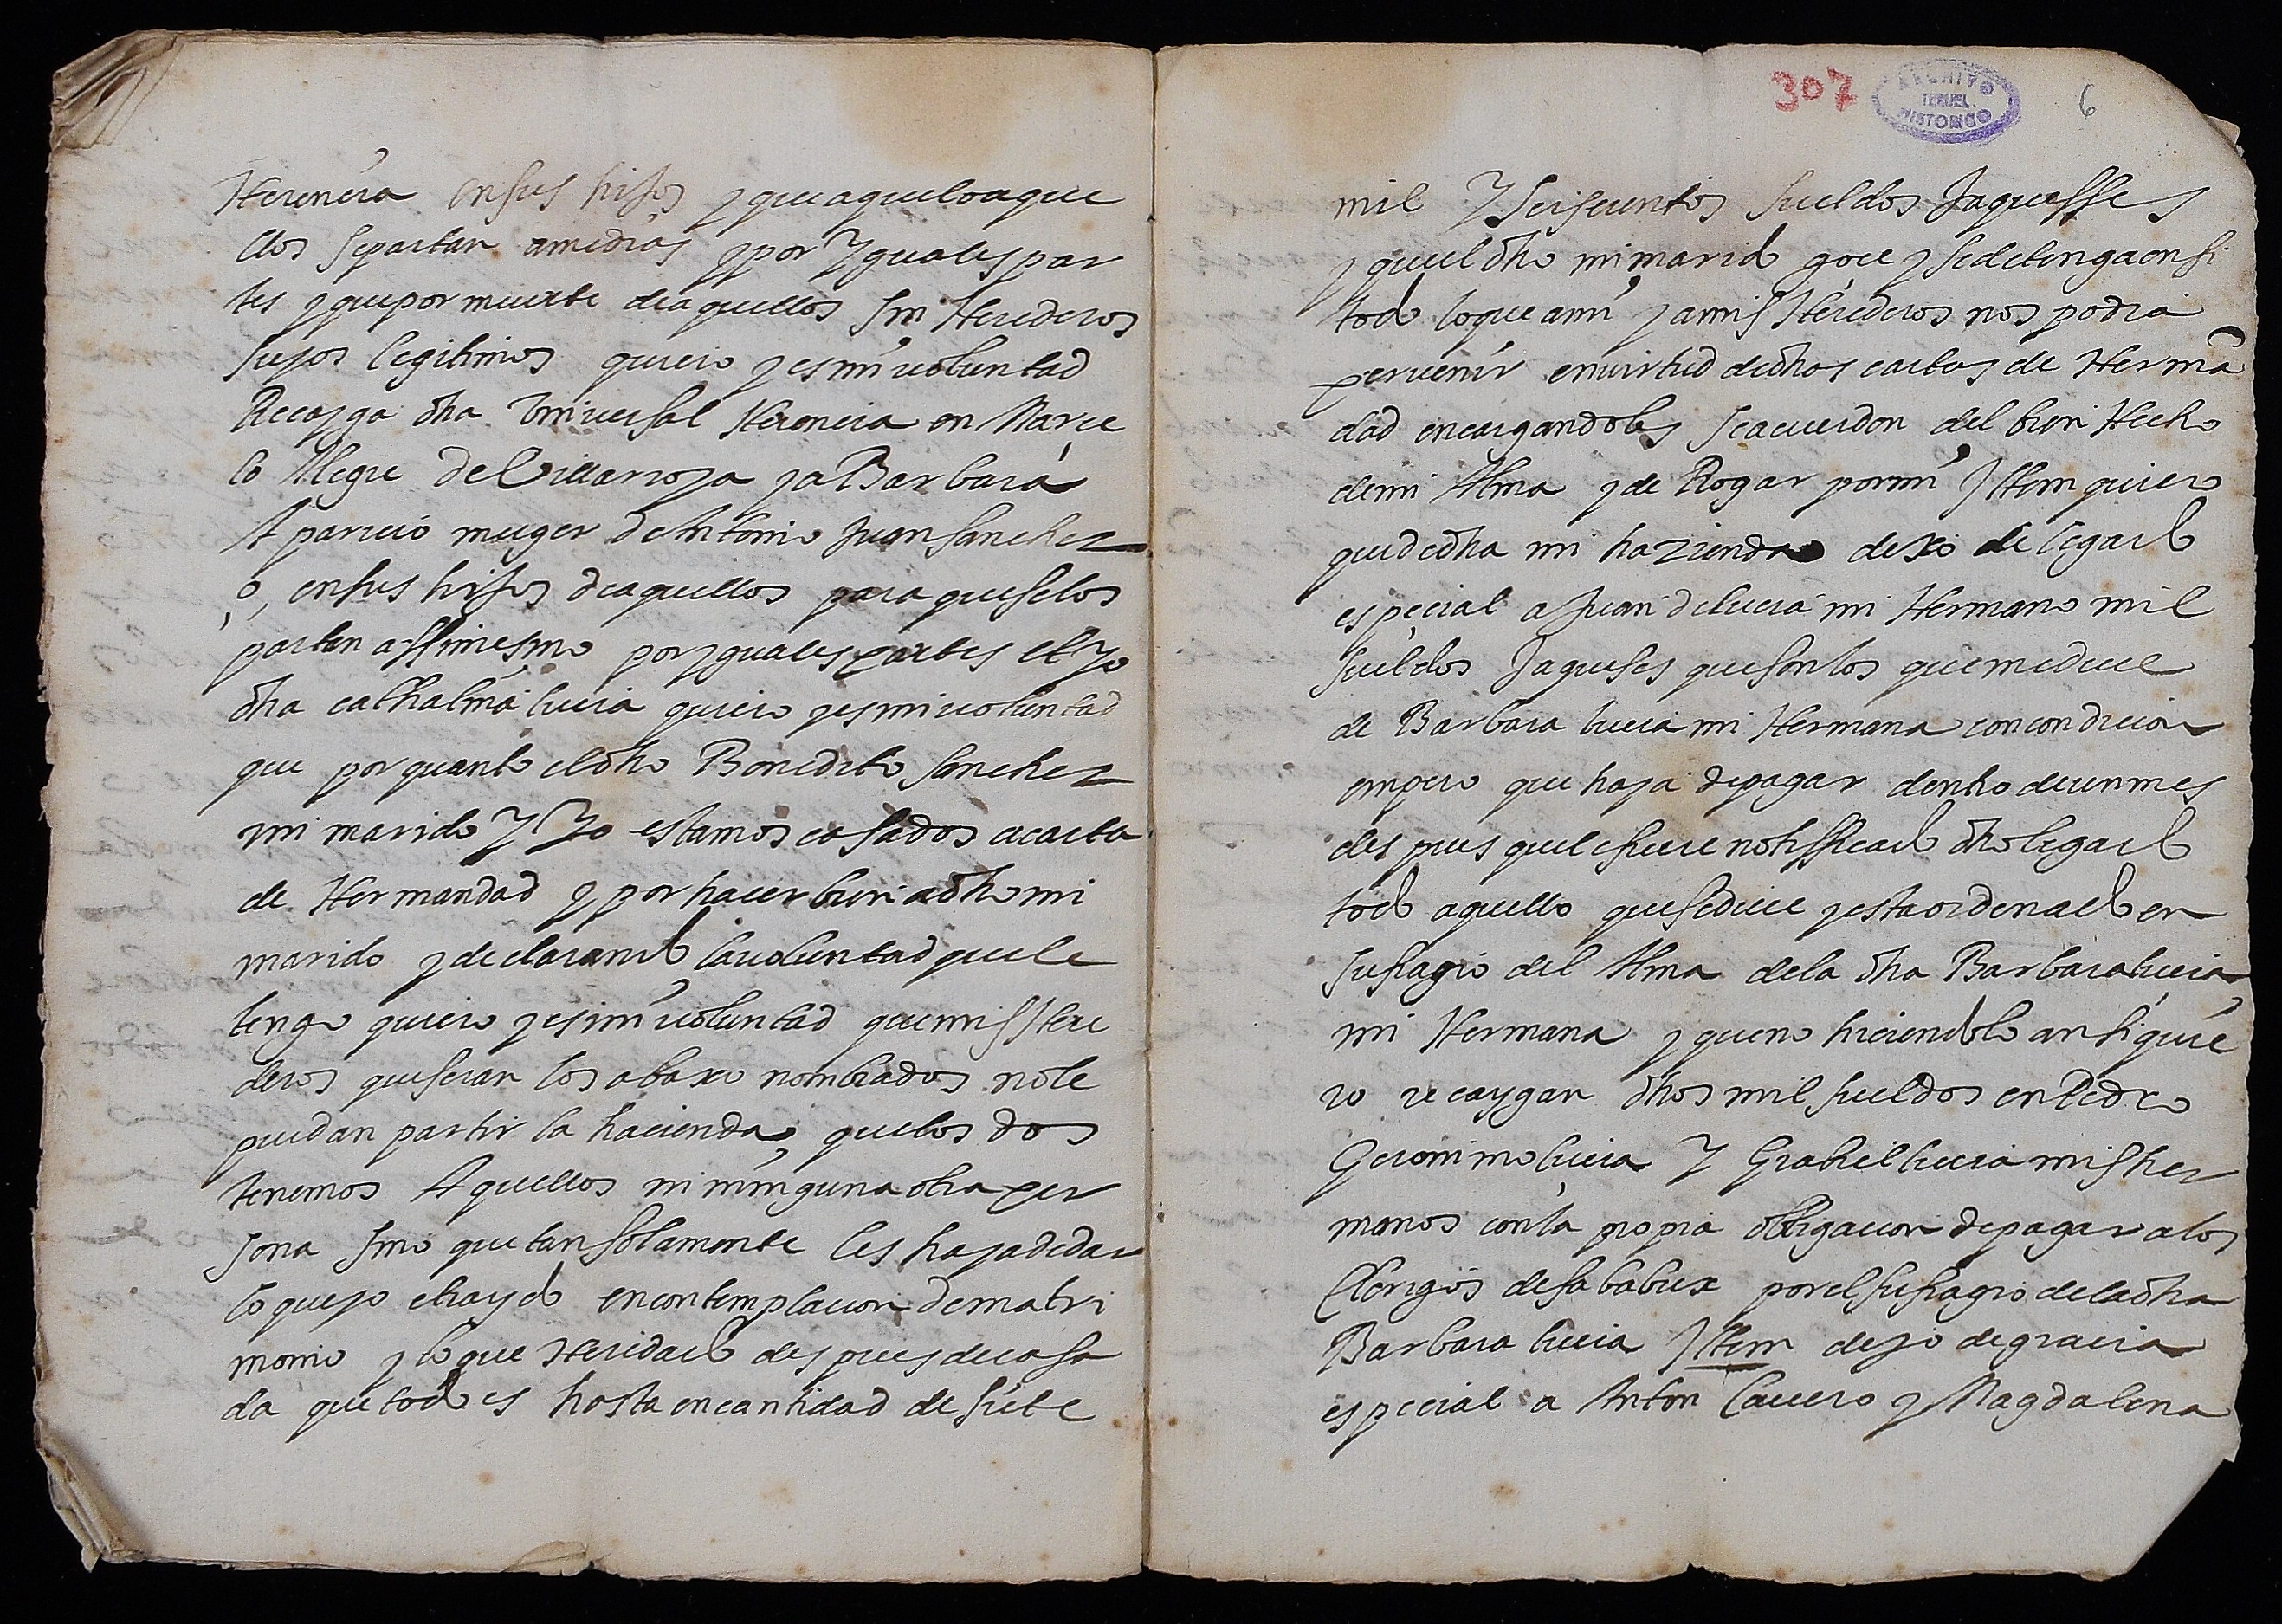 Herençia en sus hijos y que aquello aque
llos se partan a medias y por yguales par
tes y que por muerte de aquellos sin Herederos
suyos legitimos quiero y es mi voluntad
Recayga dha Vniversal Herencia en Marce
lo Alegre de Villarroya y a Barbara
Aparicio muger de Antonio Juan Sanchez
o, en sus hijos de aquellos para que se los
parten assimesmo por yguales partes et yo
dha Cathalina lucia quiero y es mi voluntad
que por quanto el dho Benedito Sanchez
mi marido y Yo estamos casados a carta
de Hermandad y por hacer bien a dho mi
marido y declarando la voluntad que le
tengo quiero y es mi voluntad que mis Here
deros que seran los abaxo nombrados no le
puedan partir la hacienda que los dos
tenemos Aquellos ni ninguna otra per
sona sino que tan solamente les haya de dar
lo que yo e traydo en contemplacion de matri
monio y lo que Heredado despues de casa
da que todo es hasta en cantidad de siete
307
ARCHIVO
TERUEL
HISTORICO
6
mil y seiscientos sueldos Jaquesses
y que el dho mi marido goce y se detenga en si
todo lo que a mi y a mis Herederos nos podia
pervenir en virtud de dhas cartas de Herma
dad encargandoles se acuerdon del bien Hecho
de mi Alma y de Rogar por mi Ittem quiero
que de dha mi hazienda dexo de legado
especial a Juan de lucia mi Hermano mil
sueldos Jaqueses que son los que me dexe
de Barbara lucia mi Hermana con condicion
empero que haya de pagar dentro de un mes
despues que le fuere notifficado dho legado
todo aquello que se dice y esta ordenado en
sufragio del Alma de la dha Barbara lucia
mi Hermana y que no hiciendolo ansi quie
ro recaygan dhos mil sueldos en Pedro
Geronimo lucia y Grabiel lucia mis her
manos con la propia obligacion de pagar a los
Clerigos de por el sufragio de la dha
Barbara lucia Ittem dejo de gracia
especial a Anton Cavero y Magdalena